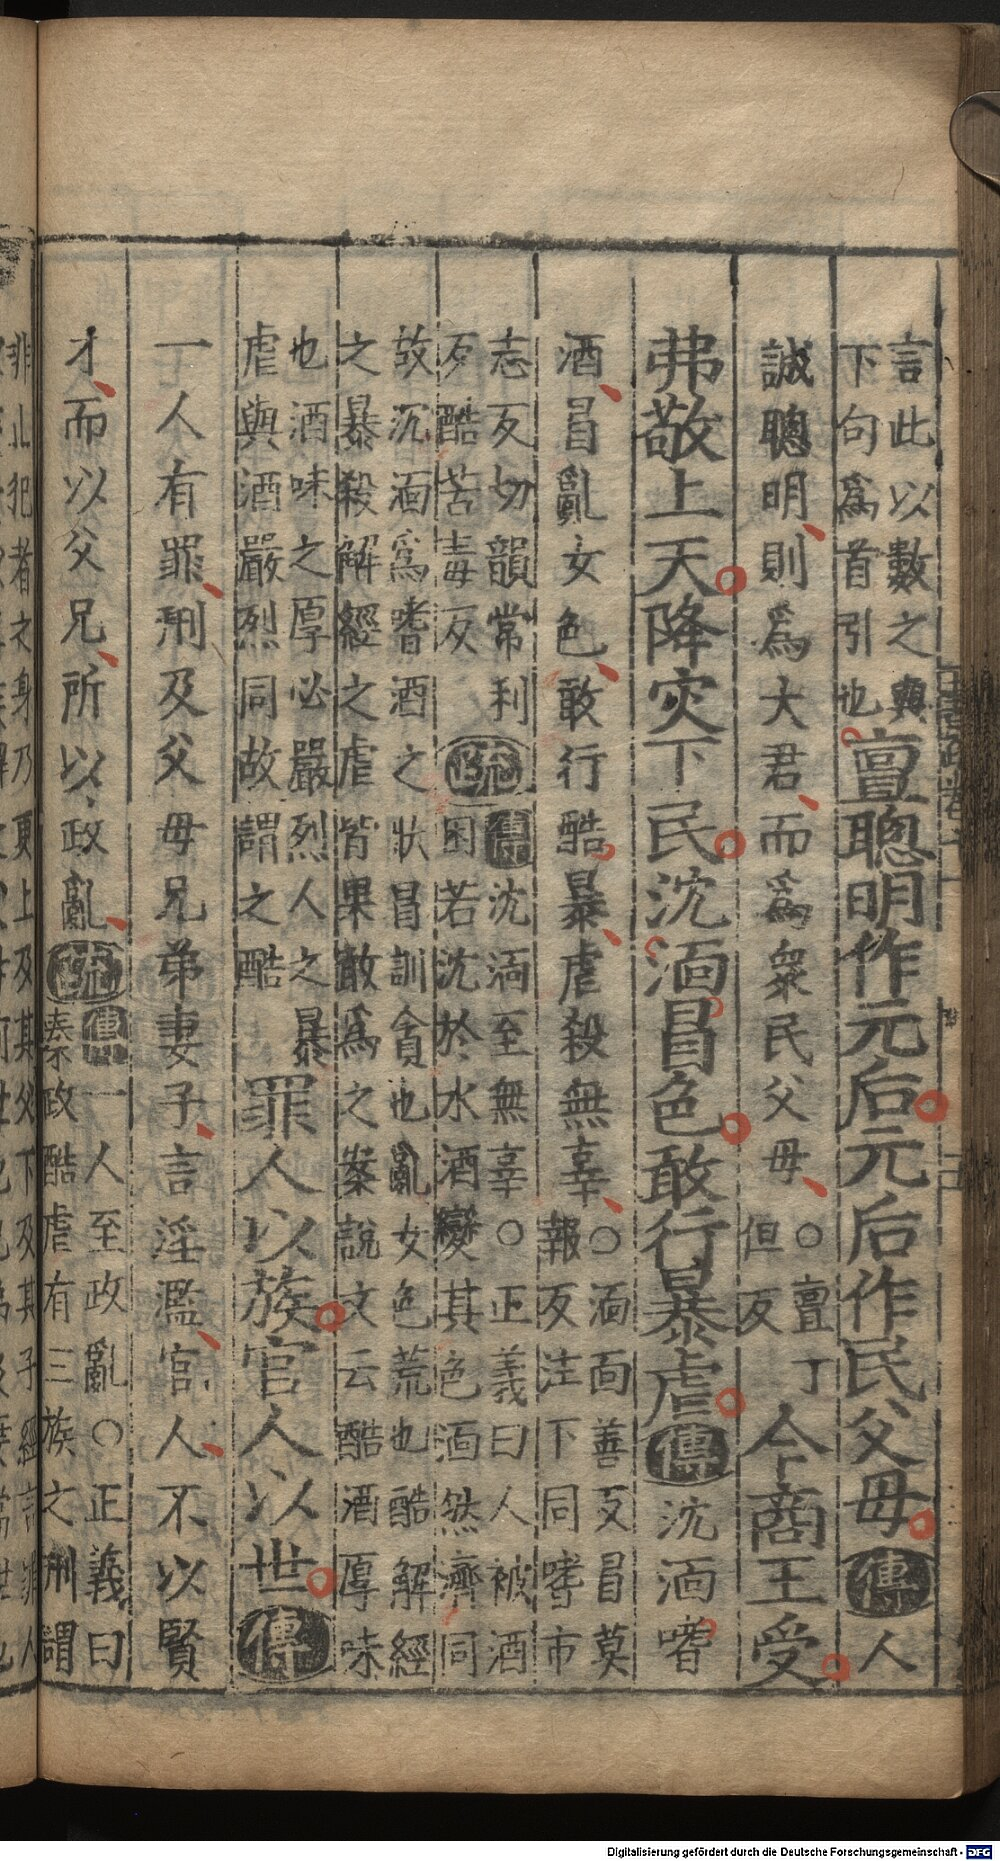 言此以數之與
下句爲首引也
亶聰明作元后元后作民父母傳人
誠聰明則爲大君而爲衆民父母
○亶丁
但反
今商王受
弗敬上天降災下民沈湎冒色敢行暴虐傳沈湎嗜
酒冒亂女色敢行酷暴虐殺無辜
○湎面善反冒莫
報反注下同嗜市
志反切韻常利
反酷苦毒反
疏
傳沈湎至無辜○正義曰人被酒
困若沈於水酒變其色湎然濟同
故沉湎爲嗜酒之狀冒訓貪也亂女色荒也酷解經
之暴殺解經之虐皆果敢爲之案說文云酷酒厚味
也酒味之厚必嚴烈人之暴
虐與酒嚴烈同故謂之酷
罪人以族官人以世傳
一人有罪刑及父母兄弟妻子言淫濫官人不以賢
才而以父兄所以政亂疏
傳一人至政亂○正義曰
秦政酷虐有三族之刑謂
非止犯者之身乃更上及其父下及其子經言罪人
Digitalisierung gefördert durch die Deutsche Forschungsgemeinschaft - DFG